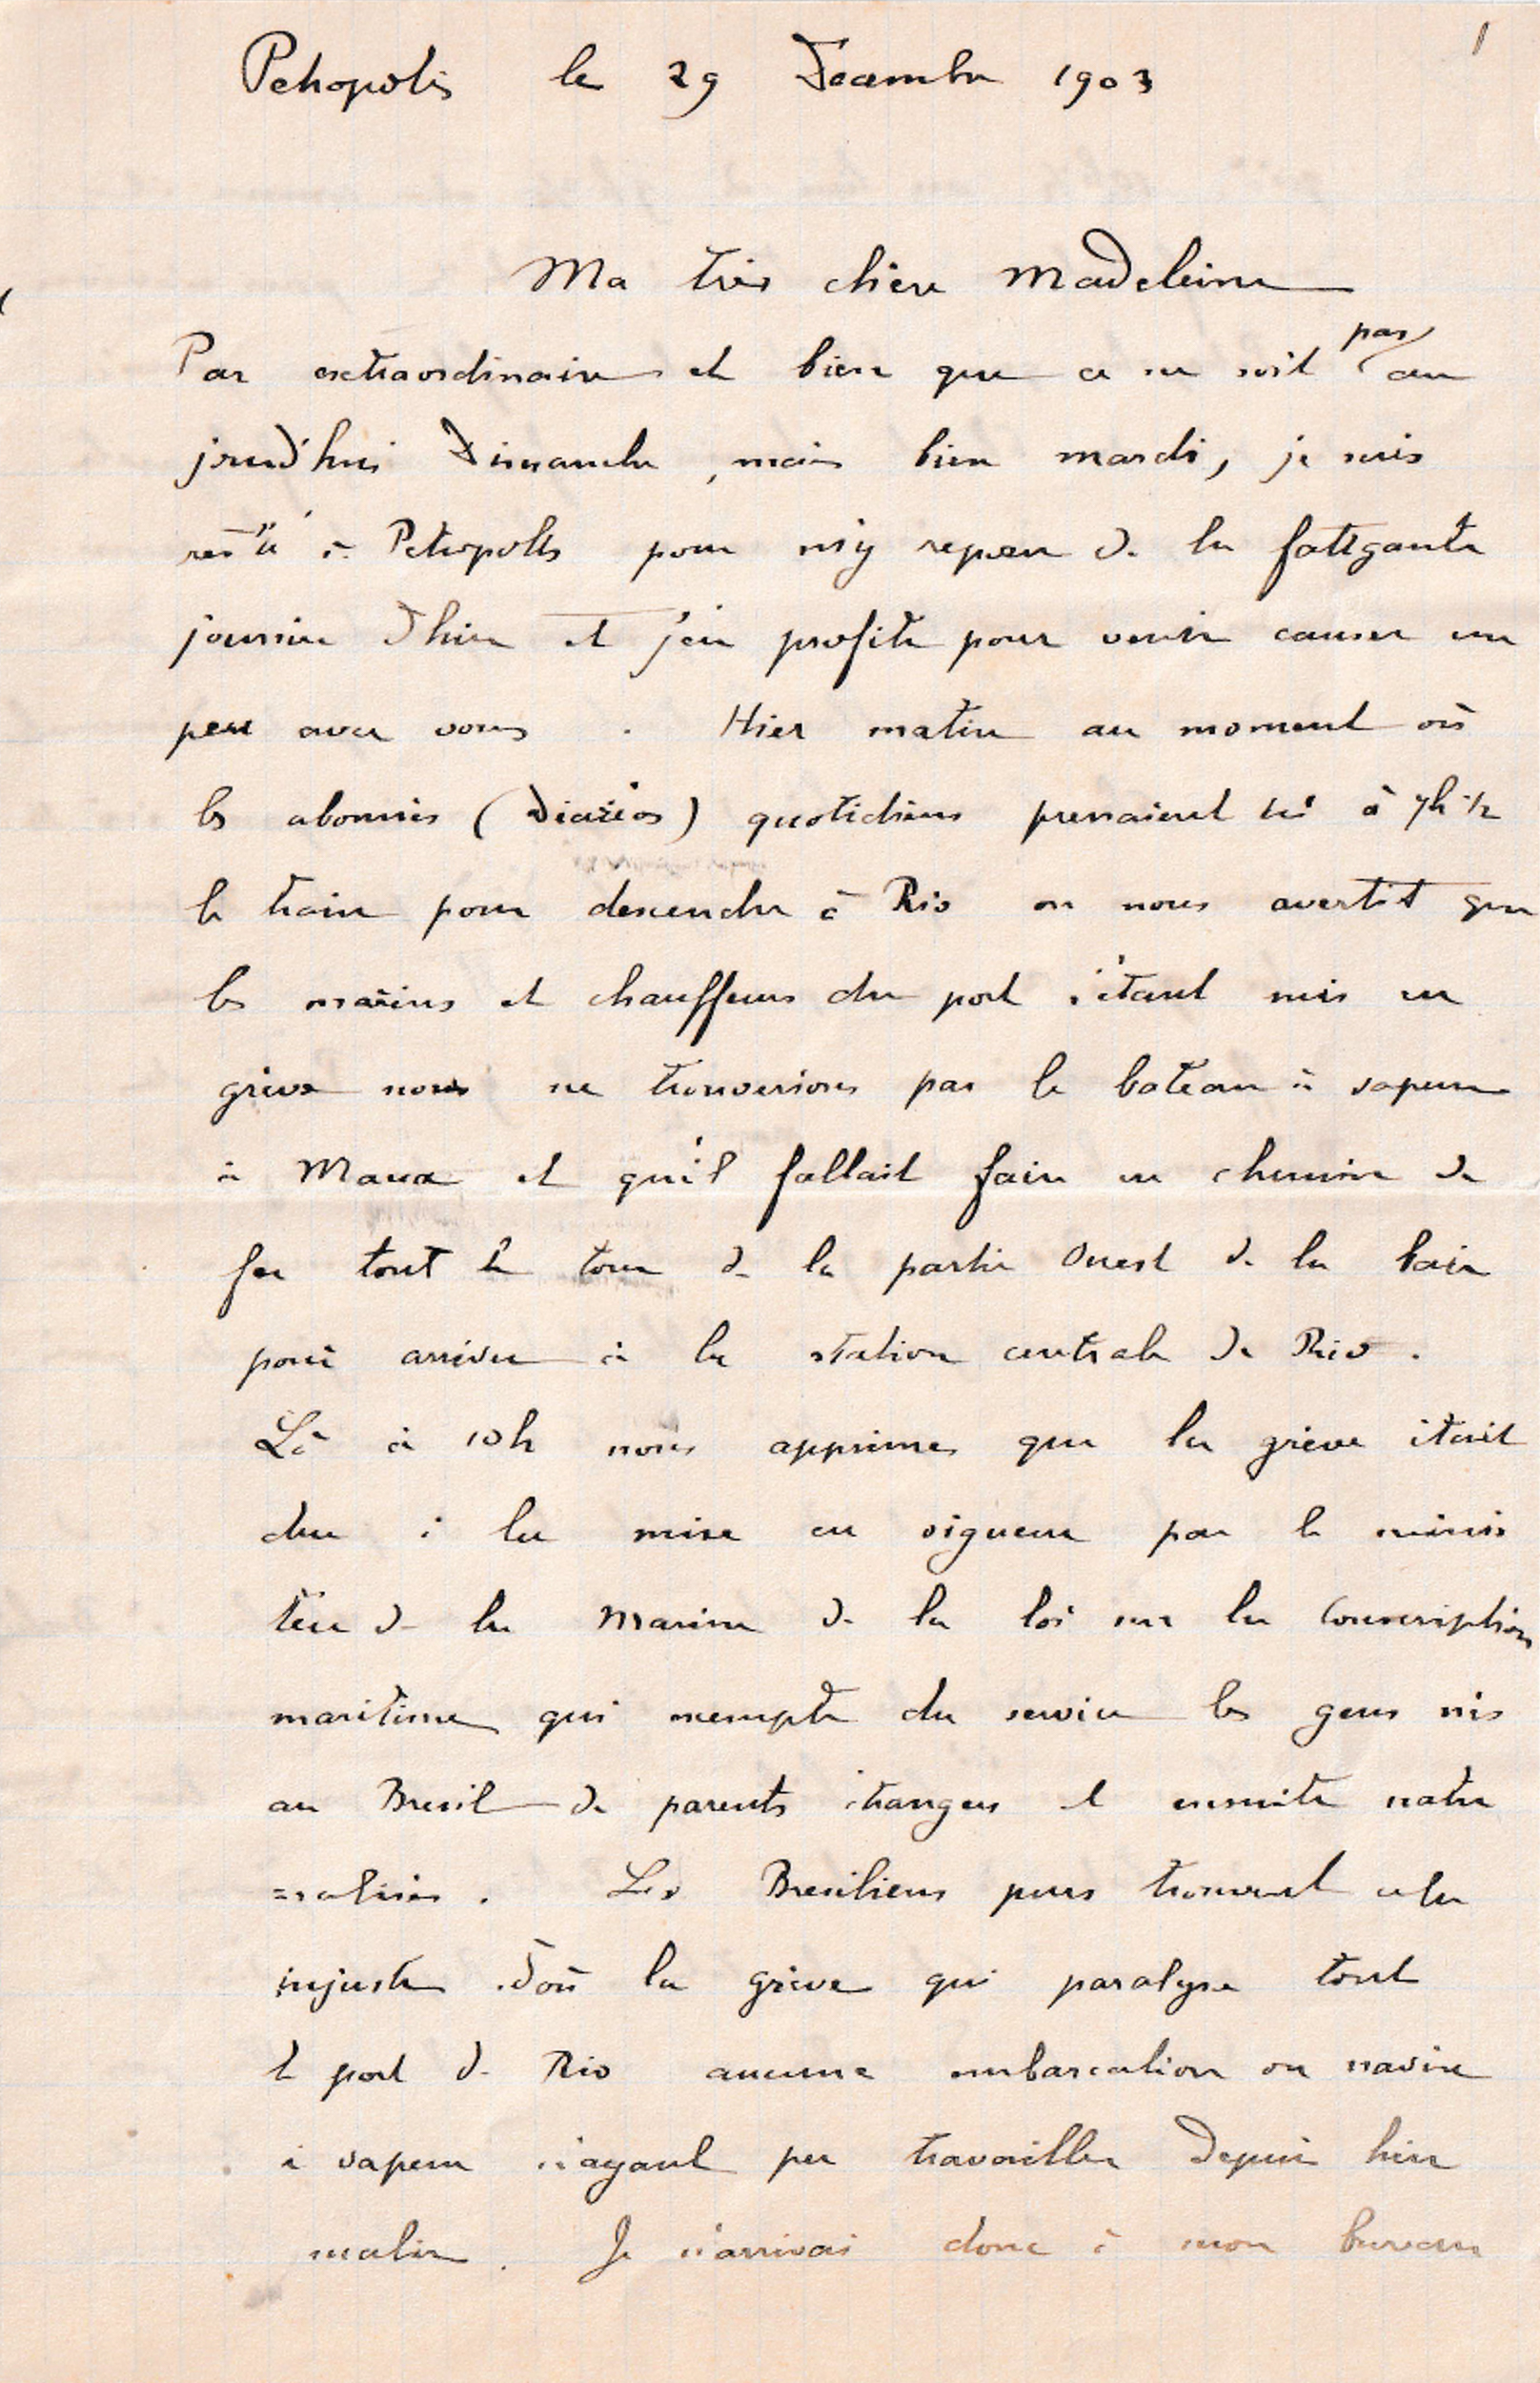 1
Petropolis le 29 Decembre 1903
Ma très chère Madeleine
Par extraordinaire et bien que ce ne soit pas au
jourd'hui Dimanche, mais bien mardi, je suis
resté à Petropolis pour m'y reposer de la fatigante
journée d'hier et j'en profite pour venir causer un
peu avec vous. Hier matin au moment où
les abonnés (Diarios) quotidiens prenaient ici à 7h 1/2
le train pour descendre à Rio on nous avertit que
les marins et chauffeurs du port s'étant mis en
grève nous ne trouverions pas le bateau à vapeur
à Maua et qu'il fallait faire en chemin de
fer tout le tour de la partie Ouest de la baie
pour arriver à la station centrale de Rio.
Là à 10h nous apprimes que la grève était
due à la mise en vigueur par le minis
tère de la Marine de la loi sur la Conscription
maritime qui exempte du service les gens nés
au Bresil de parents étrangers et ensuite natu
=ralisés. Les Bresiliens purs trouvent cela
injuste. D'où la grève qui paralyse tout
le port de Rio aucune embarcation ou navire
à vapeur n'ayant pu travailler depuis hier
matin. Je n'arrivai donc à mon bureau